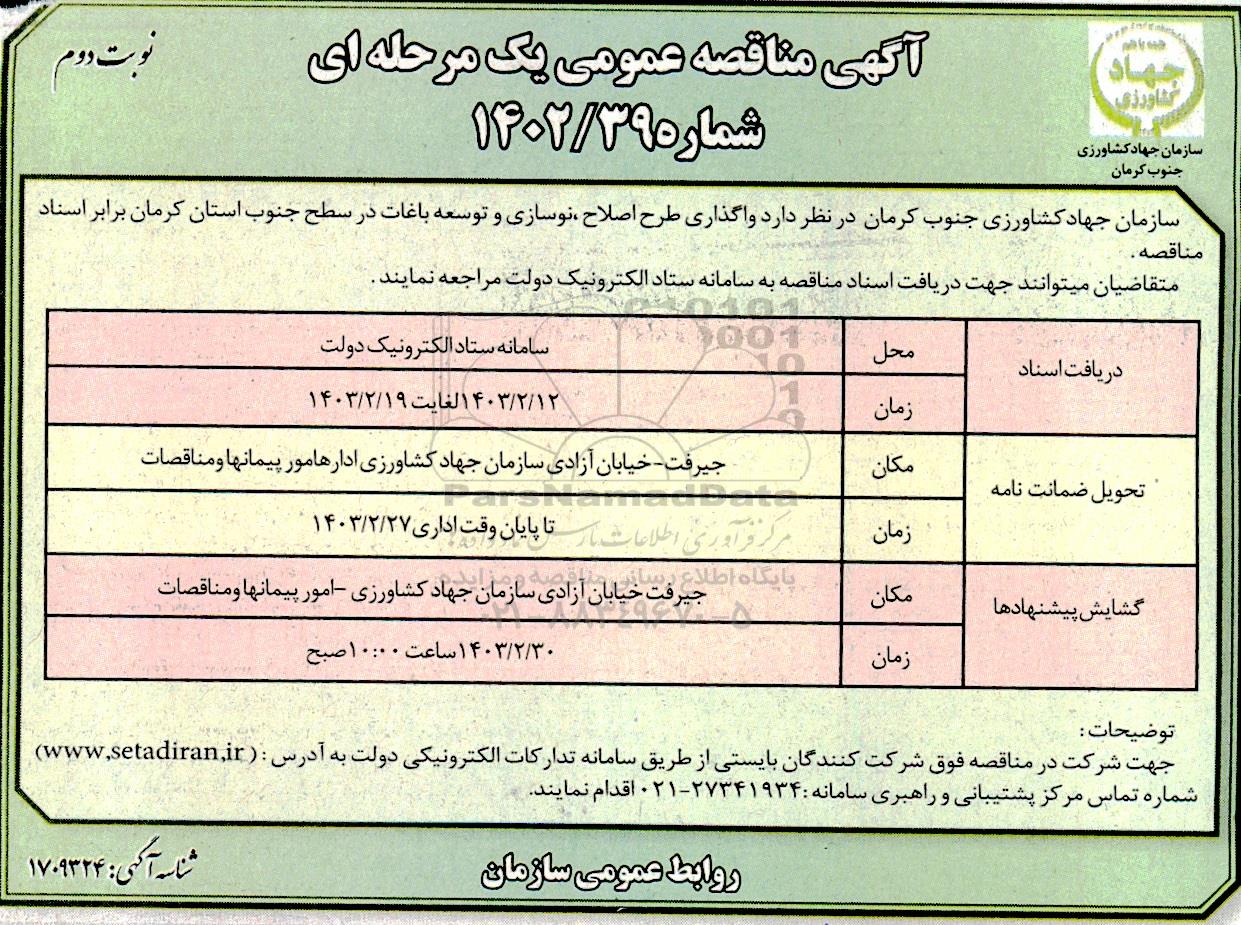 نوبت دوم
آگهی مناقصه عمومی یک مرحله ای
شماره ۱۴۰۲/۳۹
همه با هم
جهاد
کشاورزی
سازمان جهاد کشاورزی
جنوب کرمان
سازمان جهاد کشاورزی جنوب کرمان در نظر دارد واگذاری طرح اصلاح ،نوسازی و توسعه باغات در سطح جنوب استان کرمان برابر اسناد
مناقصه .
متقاضیان میتوانند جهت دریافت اسناد مناقصه به سامانه ستاد الکترونیک دولت مراجعه نمایند .
دریافت اسناد
محل
سامانه ستاد الکترونیک دولت
زمان
۱۴۰۳/۲/۱۲لغایت ۱۴۰۳/۲/۱۹
تحویل ضمانت نامه
مکان
جیرفت-خیابان آزادی سازمان جهاد کشاورزی ادارهامور پیمانها ومناقصات
زمان
تا پایان وقت اداری۱۴۰۳/۲/۲۷
گشایش پیشنهادها
مکان
جیرفت خیابان آزادی سازمان جهاد کشاورزی –امور پیمانها ومناقصات
زمان
۱۴۰۳/۲/۳۰ساعت ۱۰:۰۰صبح
ParsNamadData
مرکز فرآوری اطلاعات پارس نماد داده ها
پایگاه اطلاع رسانی مناقصه و مزایده
۰۲۱-۸۸۳۴۹۶۷۰-۵
توضیحات :
جهت شرکت در مناقصه فوق شرکت کنندگان بایستی از طریق سامانه تدارکات الکترونیکی دولت به آدرس : (www,setadiran,ir)
شماره تماس مرکز پشتیبانی و راهبری سامانه :۲۷۳۴۱۹۳۴-۰۲۱ اقدام نمایند.
روابط عمومی سازمان
شناسه آگهی: ۱۷۰۹۳۲۴